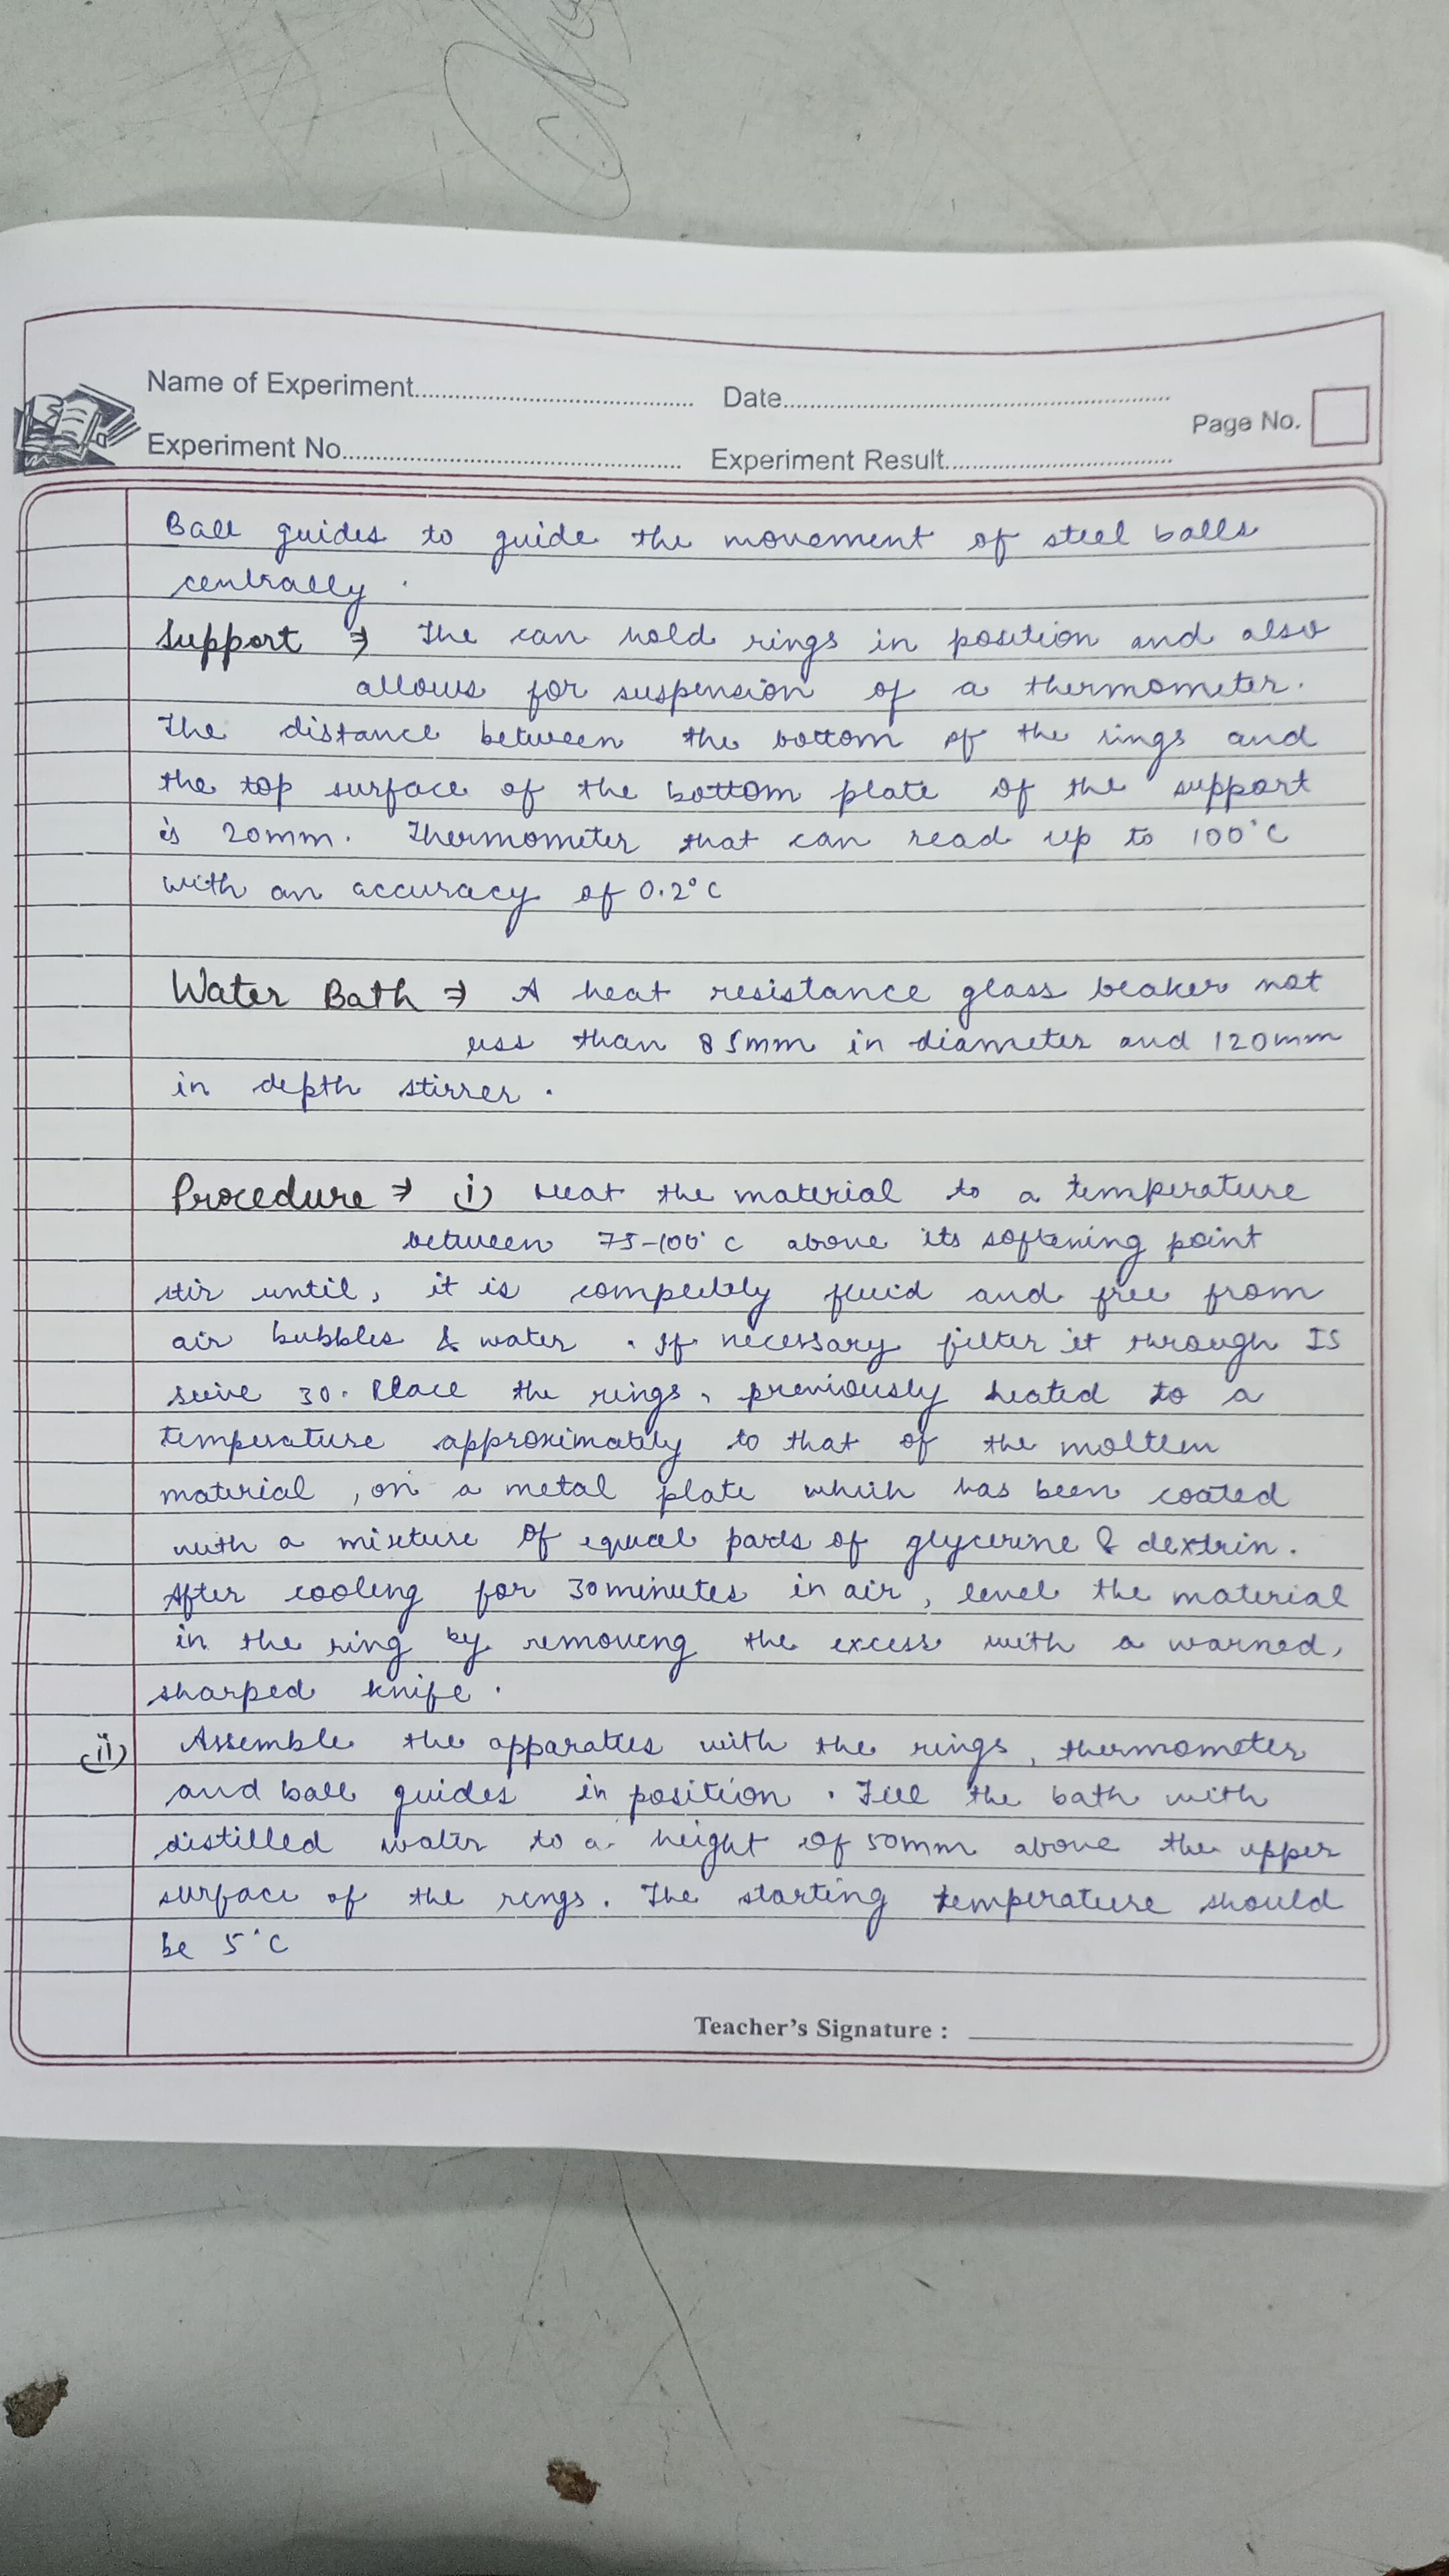 Name of Experiment
Date
Page No.
Experiment No.
Experiment Result
Ball guides to guide the movement of steel balls
centrally.
Support ⇒ The can hold rings in position and also
allows for suspension of a thermometer.
The distance between the bottom of the rings and
the top surface of the bottom plate of the support
is 20mm. Thermometer that can read up to 100°C
with an accuracy of 0.2°C
Water Bath ⇒ A heat resistance glass beaker not
less than 85mm in diameter and 120mm
in depth stirrer.
Procedure ⇒ (i) Heat the material to a temperature
between 75-100°C above its softening point
stir until, it is completely fluid and free from
air bubbles & water. If necessary filter it through IS
seive 30. Place the rings, previously heated to a
temperature approximately to that of the moltem
material, on a metal plate which has been coated
with a mixture of equal parts of glycerine & dextrin.
After cooling for 30 minutes in air, level the material
in the ring by removing the excess with a warned,
sharped knife.
(ii) Assemble the apparatus with the rings, thermometer
and ball guides in position. Fill the bath with
distilled water to a height of 50mm above the upper
surface of the rings. The starting temperature should
be 5°C
Teacher's Signature :